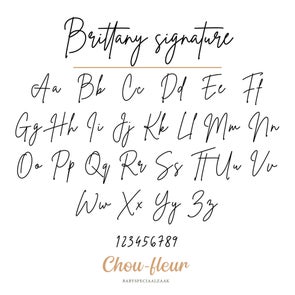 Brittany signature
Aa Bb Cc Dd Ee Ff
Gg Hh Ii Jj Kk Ll Mm Nn
Oo Pp Qq Rr Ss Tt Uu Vv
Ww Xx Yy Zz
123456789
Chou-fleur
BABYSPECIAALZAAK